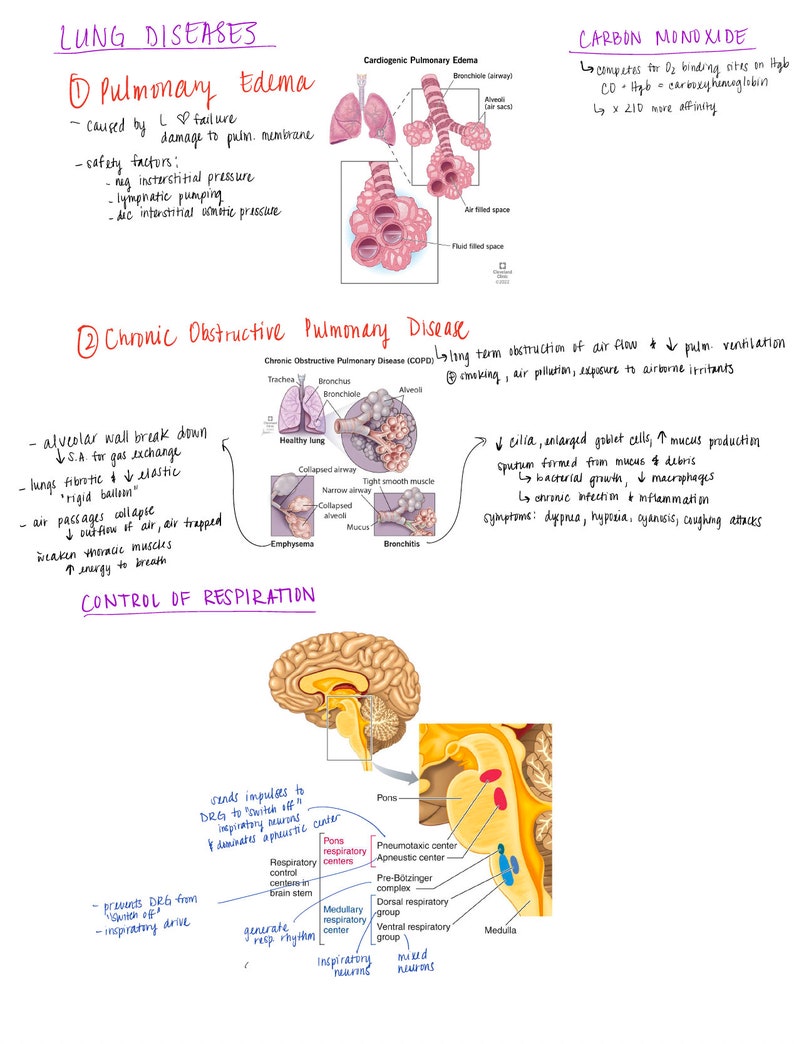 LUNG DISEASES
CARBON MONOXIDE
↳ competes for O2 binding sites on Hgb
CO + Hgb = carboxyhemoglobin
↳ x 210 more affinity
① Pulmonary Edema
- caused by L ♡ failure
damage to pulm. membrane
- safety factors:
- neg insterstitial pressure
- lymphatic pumping
- dec interstitial osmotic pressure
Cardiogenic Pulmonary Edema
Bronchiole (airway)
Alveoli
(air sacs)
Air filled space
Fluid filled space
Cleveland
Clinic
©2022
② Chronic Obstructive Pulmonary Disease
↳ long term obstruction of air flow & ↓ pulm. ventilation
⊕ smoking, air pollution, exposure to airborne irritants
Chronic Obstructive Pulmonary Disease (COPD)
Trachea
Bronchus
Bronchiole
Alveoli
Healthy lung
Collapsed airway
Collapsed
alveoli
Emphysema
Tight smooth muscle
Narrow airway
Mucus
Bronchitis
- alveolar wall break down
↓ S.A. for gas exchange
- lungs fibrotic & ↓ elastic
"rigid balloon"
- air passages collapse
↓ outflow of air, air trapped
weaken thoracic muscles
↑ energy to breath
↓ cilia, enlarged goblet cells, ↑ mucus production
sputum formed from mucus & debris
↳ bacterial growth, ↓ macrophages
↳ chronic infection & inflammation
symptoms: dyspnea, hypoxia, cyanosis, coughing attacks
CONTROL OF RESPIRATION
sends impulses to
DRG to "switch off"
inspiratory neurons
& dominates apneustic center
- prevents DRG from
"switch off"
- inspiratory drive
Respiratory
control
centers in
brain stem
Pons
respiratory
centers
Medullary
respiratory
center
Pons
Pneumotaxic center
Apneustic center
Pre-Bötzinger
complex
Dorsal respiratory
group
Ventral respiratory
group
Medulla
generate
resp. rhythm
Inspiratory
neurons
mixed
neurons